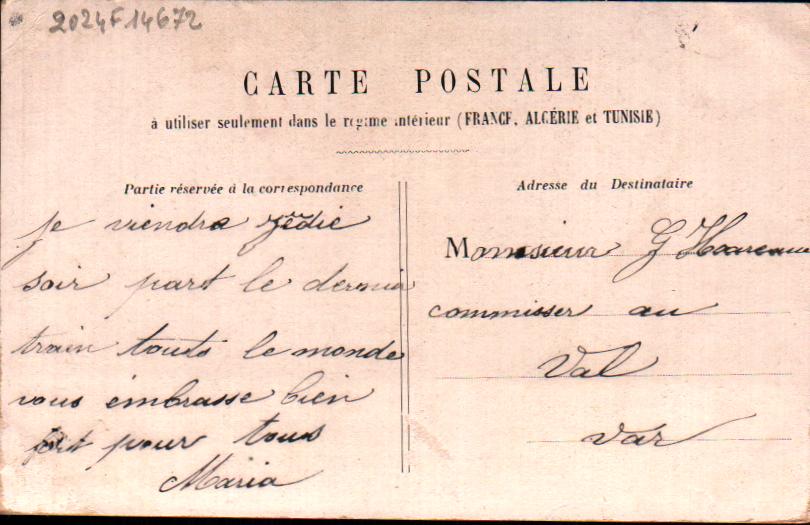 2024F14672
CARTE POSTALE
à utiliser seulement dans le régime intérieur (FRANCE, ALGÉRIE et TUNISIE)
Partie réservée à la correspondance
je viendra
soir part le dernier
train touts le monde
vous embrasse bien
fort pour tous
Maria
Adresse du Destinataire
Monsieur G Hoareau
commisser au
Val
Var